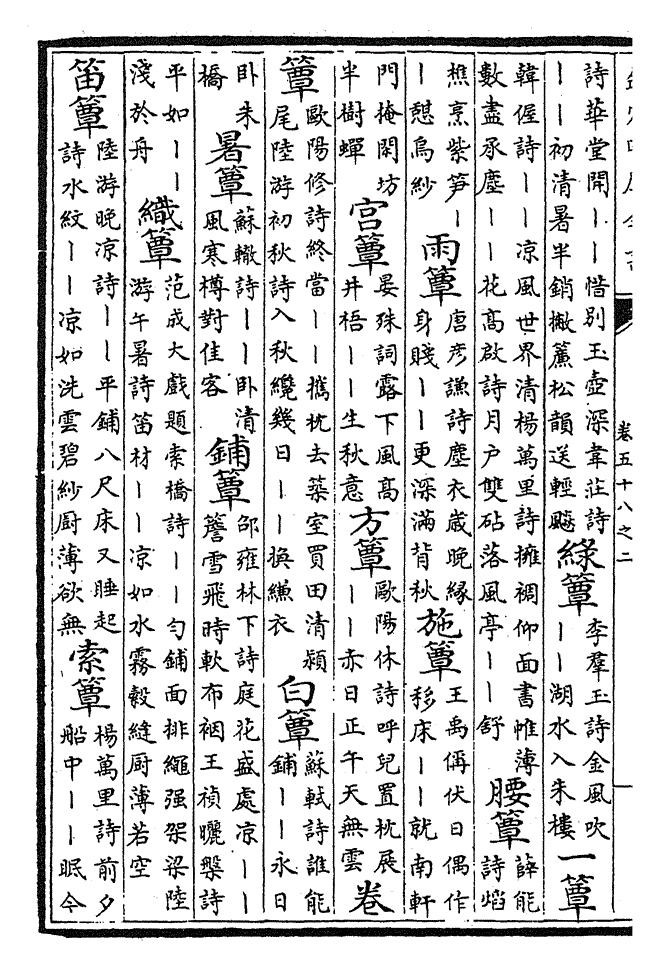 卷五十八之二
詩華堂開丨丨惜别玉壺深韋莊詩丨丨初清暑半銷撇簾松韻送輕颸 綠簟 李羣玉詩金風吹丨丨湖水入朱樓 一簟
韓偓詩丨丨凉風世界清楊萬里詩擁裯仰面書帷薄數盡承塵丨丨花高啟詩月户雙砧落風亭丨丨舒 腰簟 薛能詩焰
樵烹紫笋丨丨憇烏紗 雨簟 唐彦謙詩塵衣歲晚緣身賤丨丨更深滿背秋 施簟 王禹偁伏日偶作移床丨丨就南軒
門掩閑坊半樹蟬 宫簟 晏殊詞露下風高井梧丨丨生秋意 方簟 歐陽休詩呼兒置枕展丨丨赤日正午天無雲 卷
簟 歐陽修詩終當丨丨攜枕去築室買田清潁尾陸游初秋詩入秋纔幾日丨丨换縑衣 白簟 蘇軾詩誰能鋪丨丨永日
卧朱橋 暑簟 蘇轍詩丨丨卧清風寒樽對佳客 鋪簟 邵雍林下詩庭花盛處凉丨丨簷雪飛時軟布裀王禎曬槃詩
平如丨丨淺於舟 織簟 范成大戲題索橋詩丨丨勻鋪面排繩强架梁陸游午暑詩笛材丨丨凉如水霧縠縫厨薄若空
笛簟 陸游晚凉詩丨丨平鋪八尺床又睡起詩水紋丨丨凉如洗雲碧紗厨薄欲無 索簟 楊萬里詩前夕船中丨丨眠今